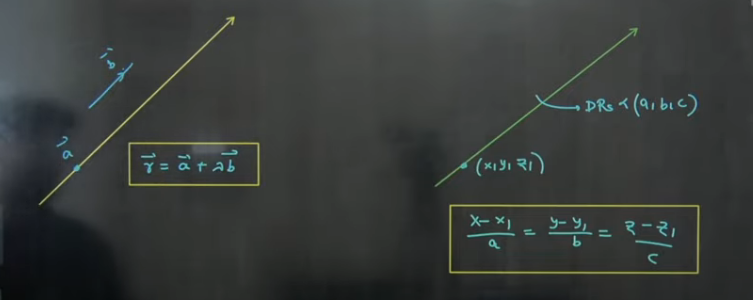 b⃗
a⃗
r⃗ = a⃗ + λb⃗
DRs < (a, b, c)
(x₁ y₁ z₁)
x - x₁ / a = y - y₁ / b = z - z₁ / c